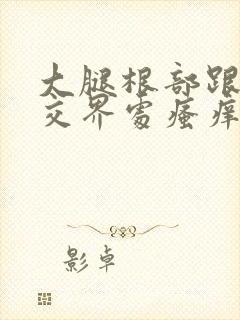 大腿根部跟
交界處瘙痒
影卓